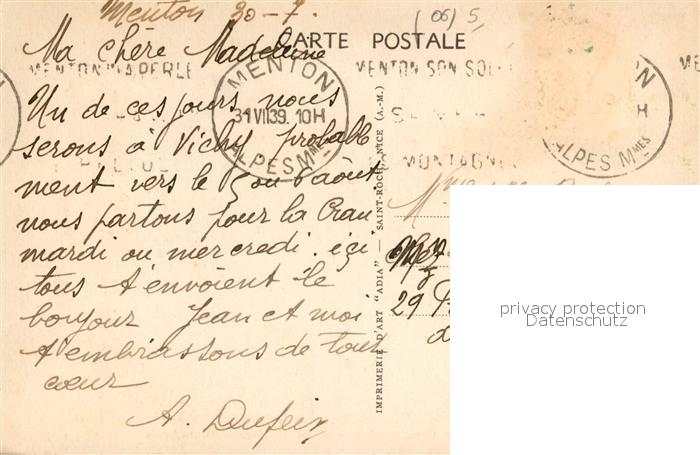 Menton 30-7.
(06) 5
CARTE POSTALE
Ma chère Madeleine
MENTON MA PERLE
MENTON
31 VII 39. 10H
ALPES Mmes
MENTON SON SOL
MONTAGNE
ALPES Mmes
Un de ces jours nous
serons à Vichy probable
ment vers le 5 ou 6 août
nous partons pour la Crau
mardi ou mercredi. ici
tous t'envoient le
bonjour Jean et moi
t'embrassons de tout
cœur
A.
IMPRIMERIE D'ART "ADIA" — SAINT-ROCH, NICE (A.-M.)
29
privacy protection
Datenschutz